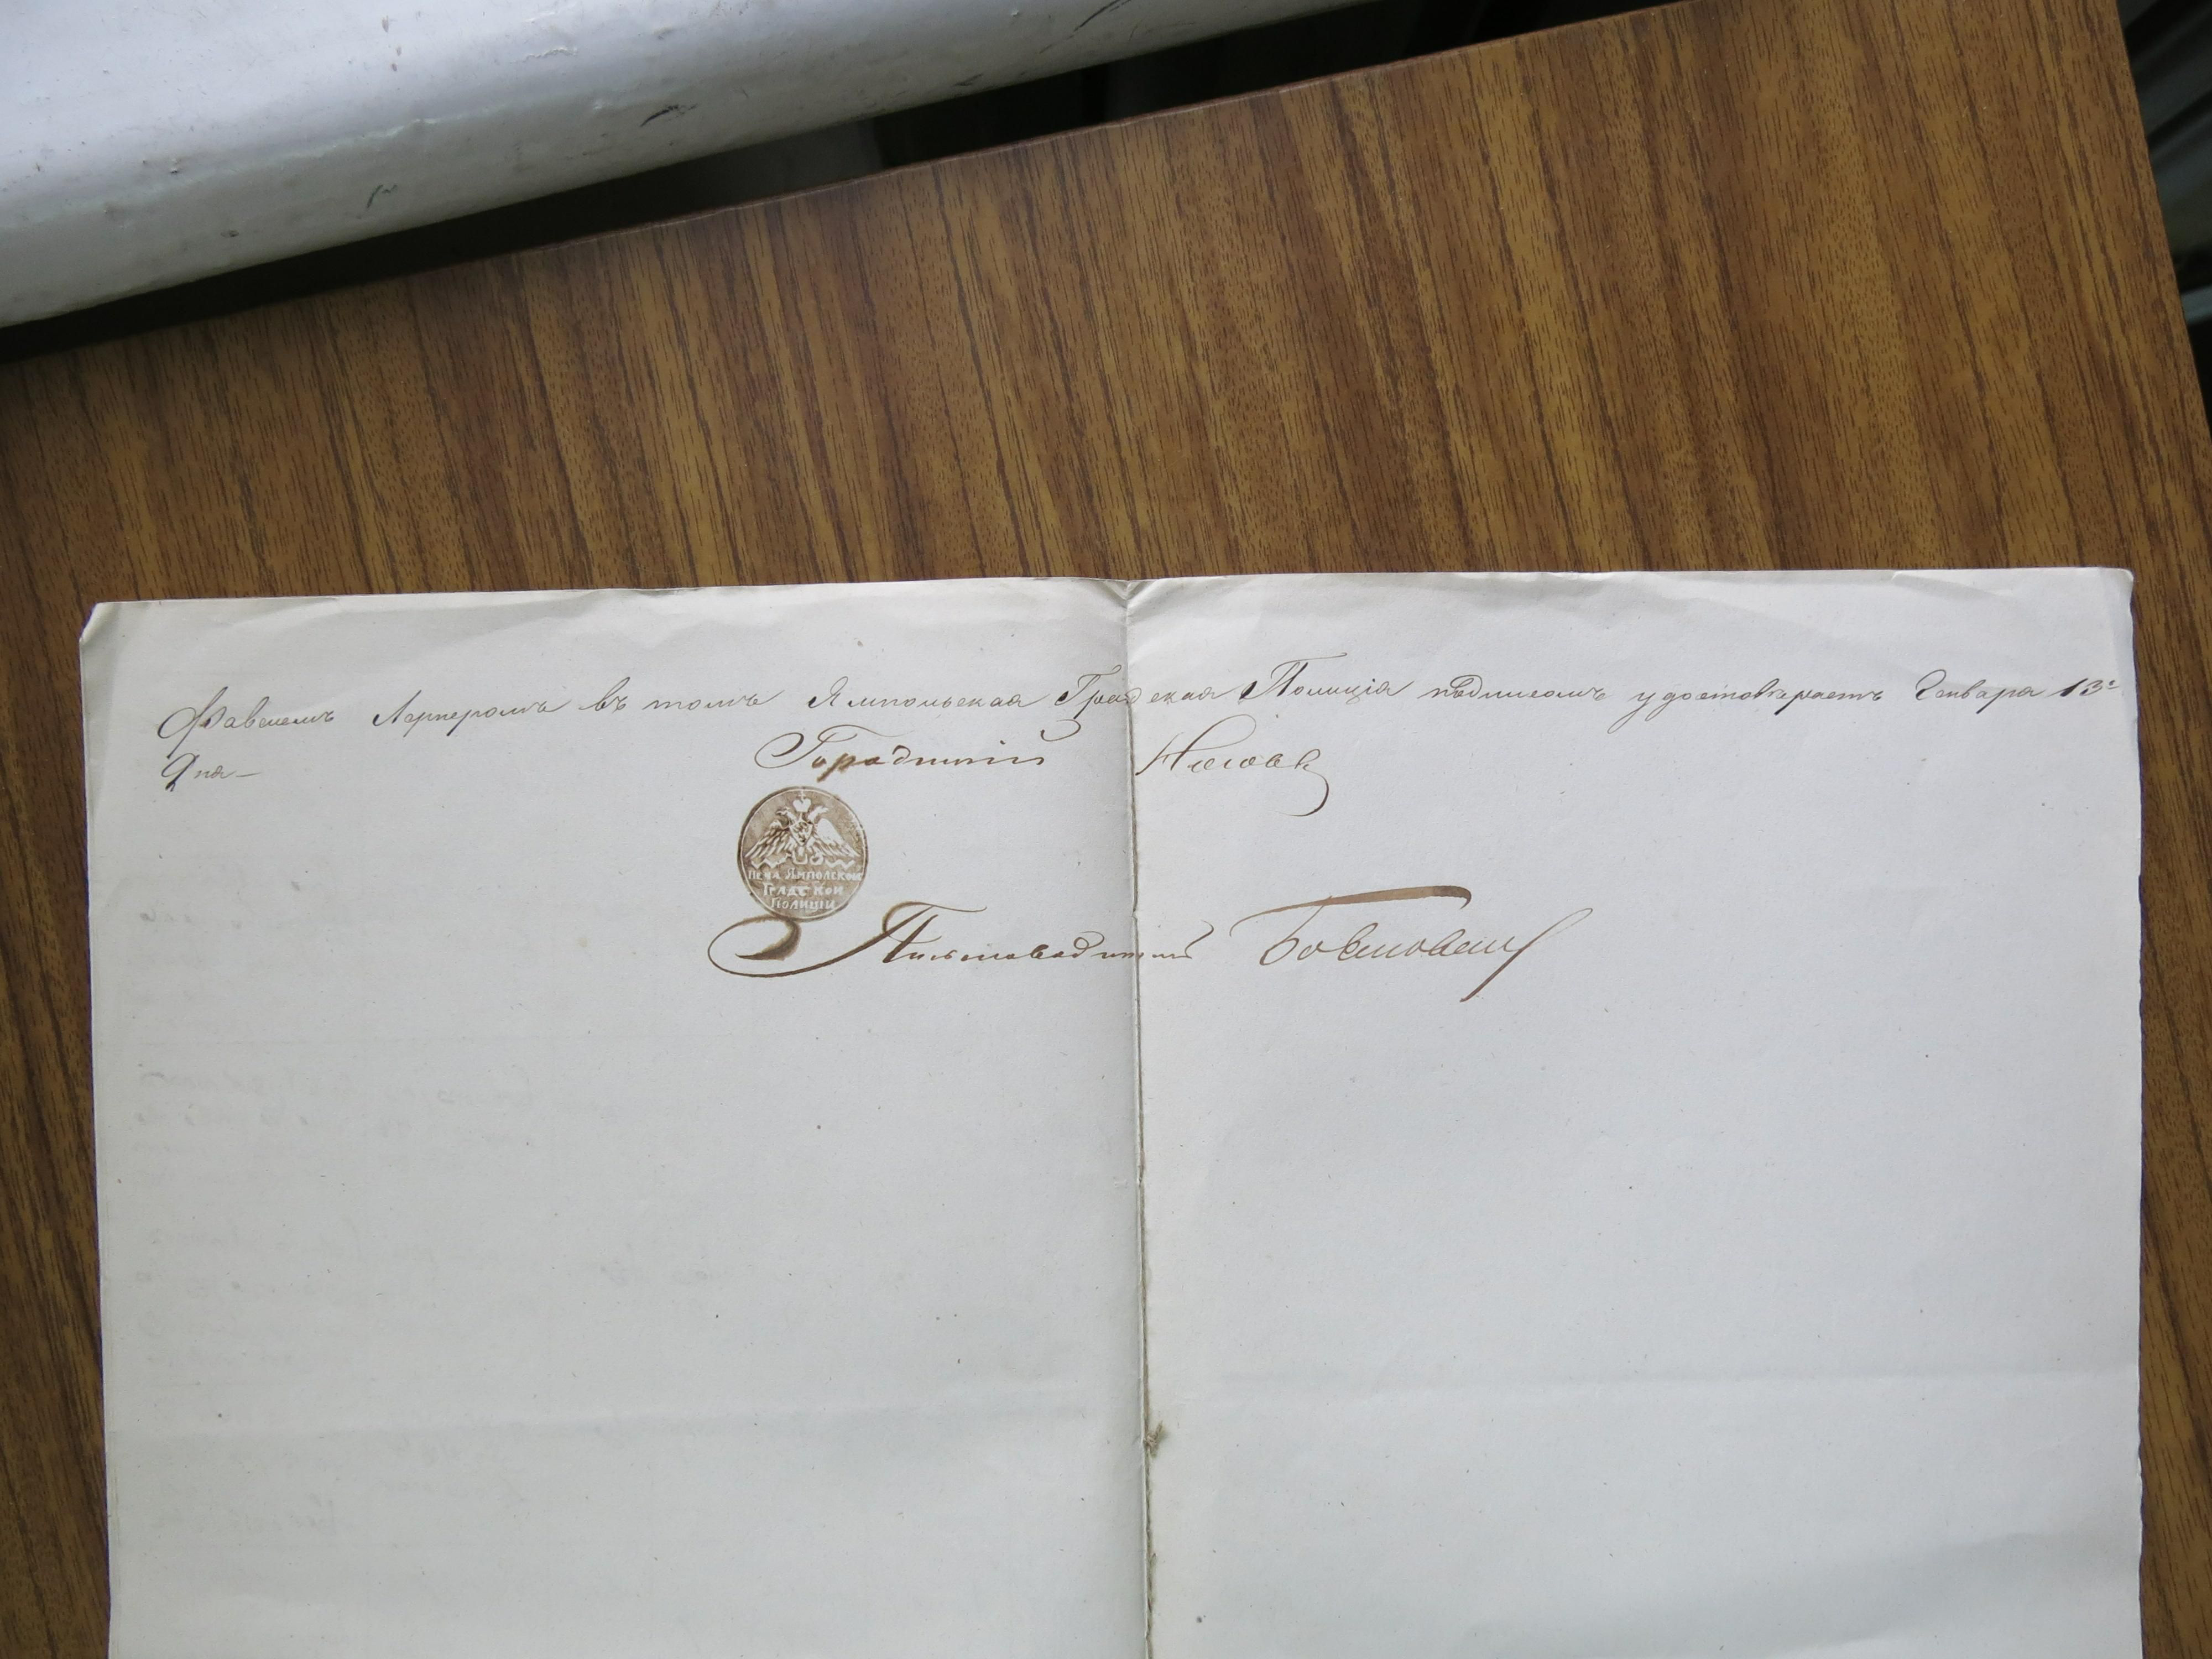 Фавелемъ Лернеромъ въ томъ Ямпольская Градская Полиція подписомъ удостовѣряетъ Генваря 13г
Дня —
Городничій Носовъ
Печа Ямполской
Градской
Полиции
Письмоводитель